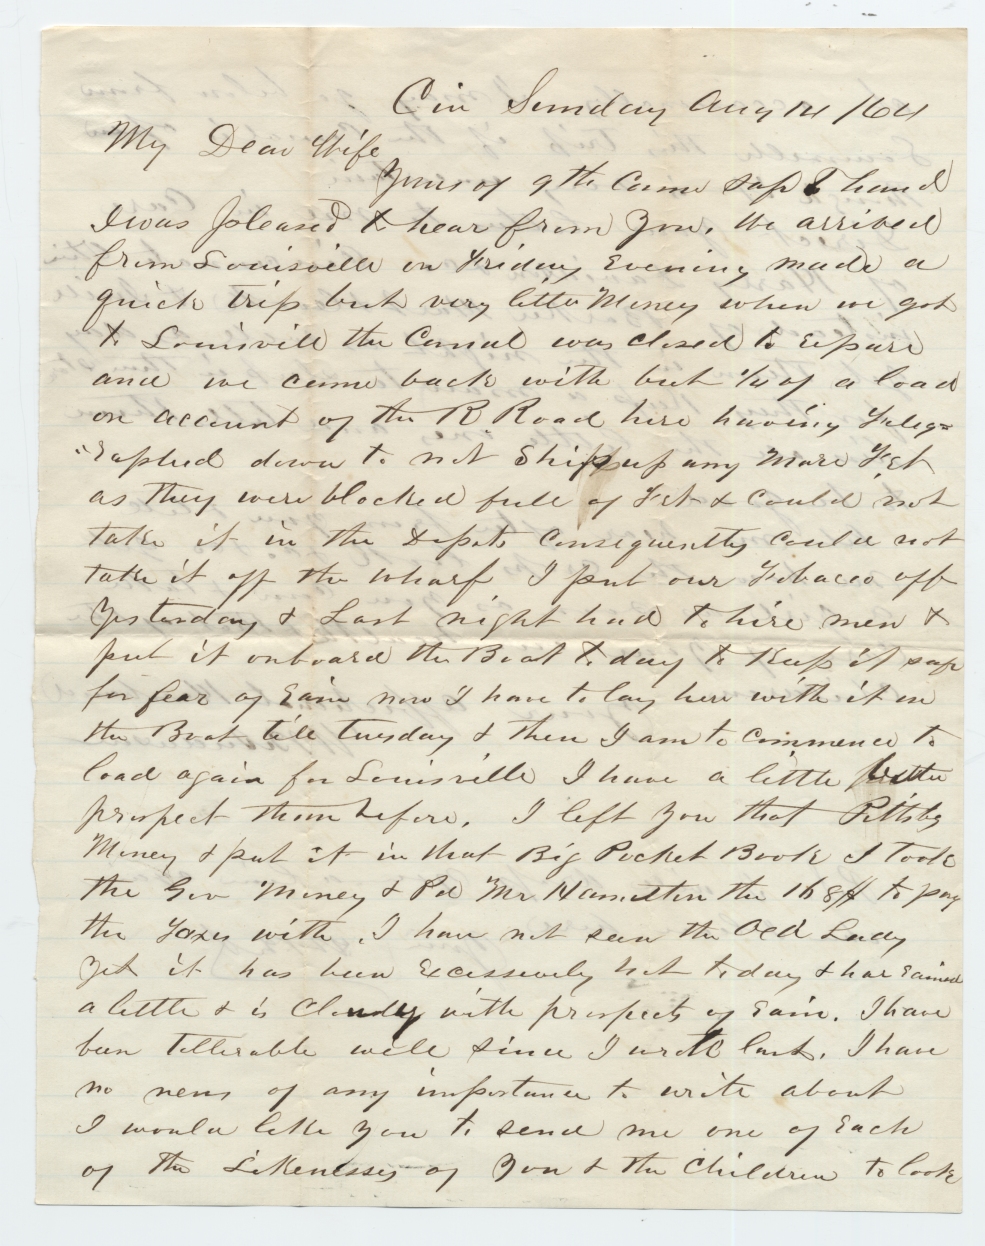 Cin Sunday Aug 14 /64
My Dear Wife
Yours of 9th Came safe to hand
I was pleased to hear from you. We arrived
from Louisville on Friday Evening made a
quick trip but very little Money when we got
to Louisville the Canal was closed to Repare
and we came back with but 1/4 of a load
on account of the R. Road here having Teleg=
"raphed down to not Ship up any More Frt
as they were blocked full of Frt & Could not
take it in the Depots Consequently could not
take it off the wharf I put our Tobacco off
Yesterday & Last night had to hire men &
put it onboard the Boat to day to Keep it safe
for fear of Rain now I have to lay here with it in
the Boat till tuesday & then I am to Commence to
load again for Louisville I have a little better
prospect than before. I left you that Pittsbg
Money & put it in that Big Pocket Book I Took
the Gov Money & Pd Mr Hamilton the 168 to pay
the Taxes with. I have not seen the Old Lady
Yet it has been Excessively hot to day & has Rained
a little & is Cloudy with prospects of Rain. I have
been tollerable well since I wrote last. I have
no news of any importance to write about
I would like you to send me one of Each
of the Likenesses of You & the Children to look